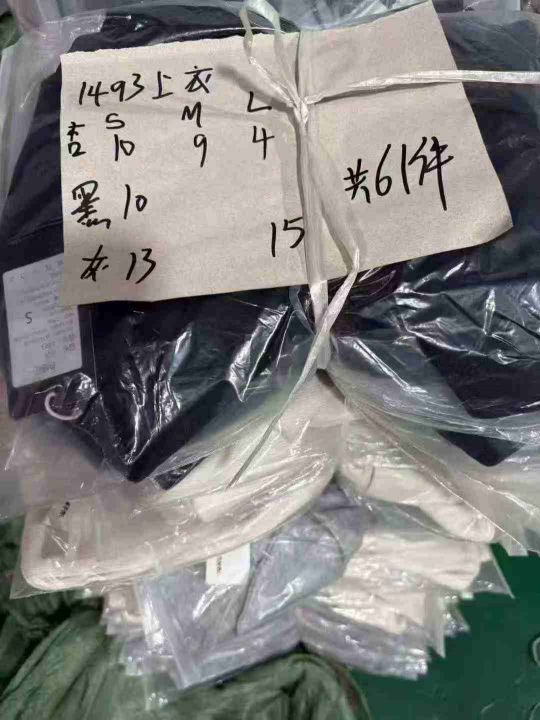 1493上衣
S M L
杏 10 9 4
黑 10
灰 13 15
共61件
S